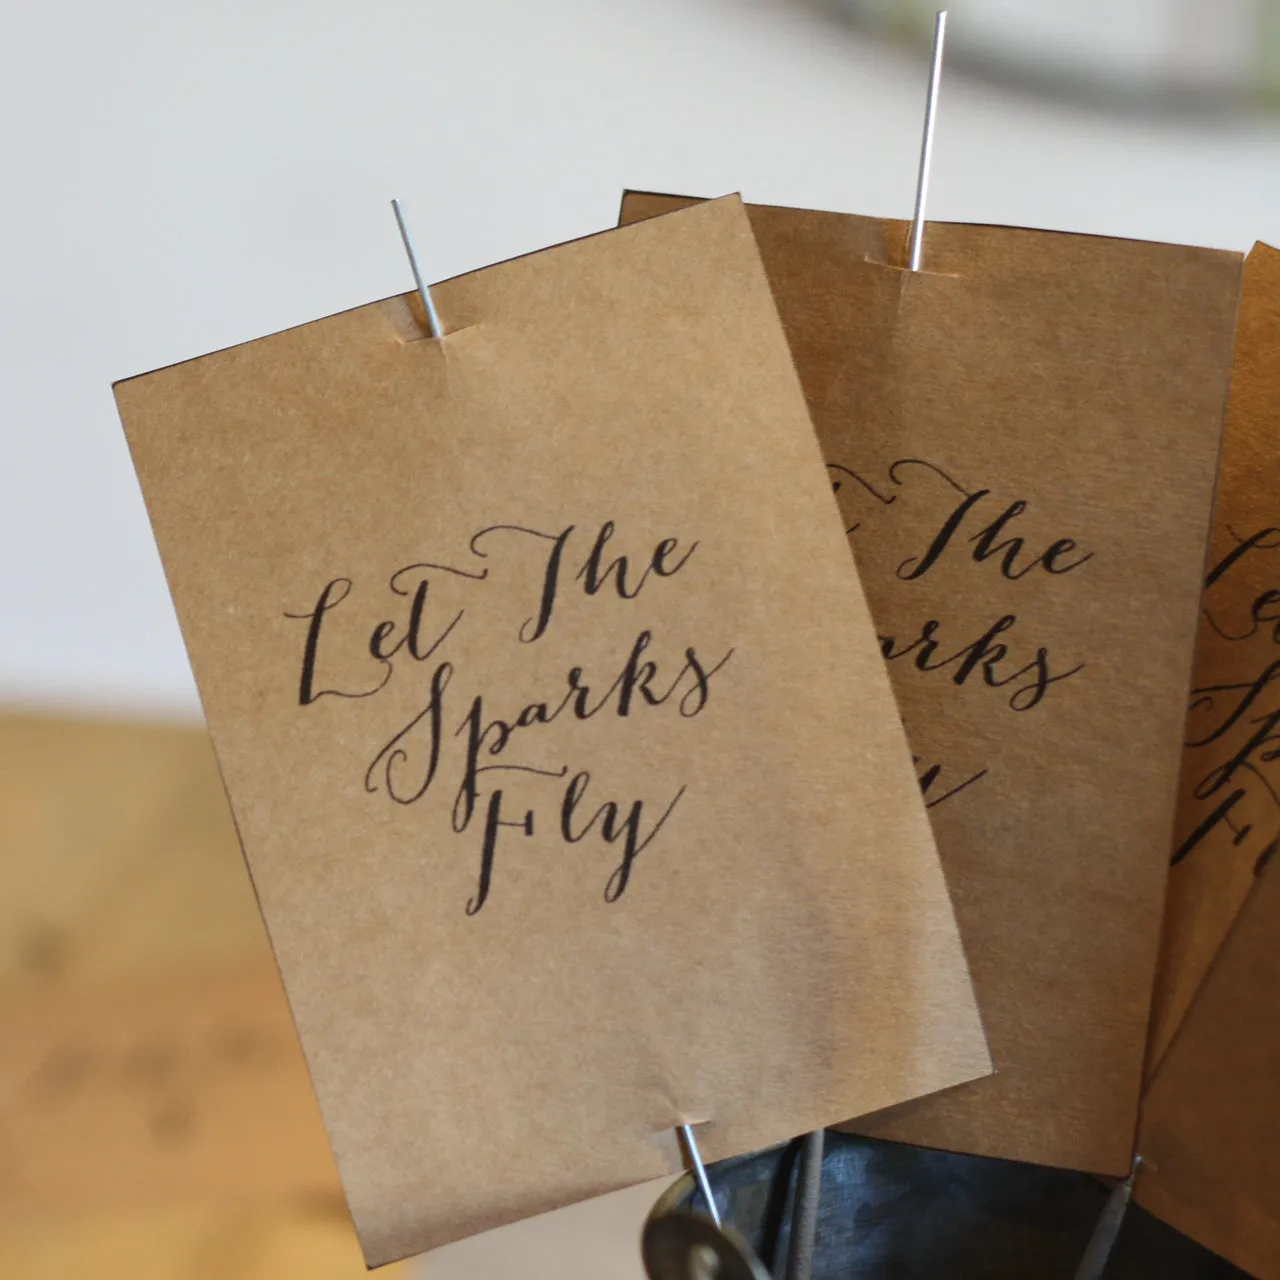 Let The
Sparks
Fly
The
arks
y
Le
Sp
F